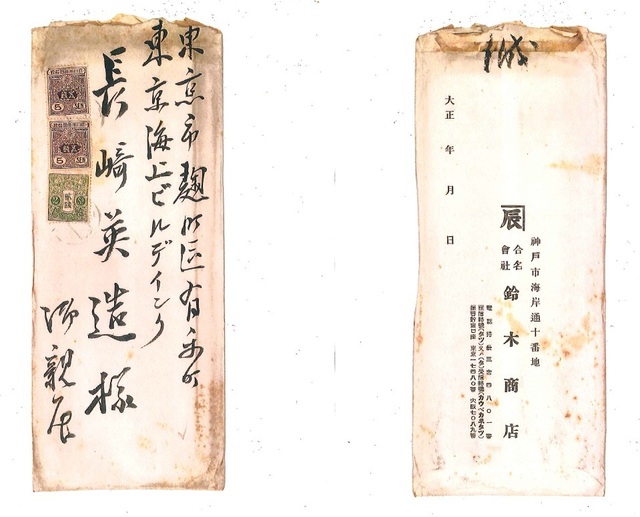 東京市麹町区有楽町
東京海上ビルディング
長崎英造様
御親展
城
大正 年 月 日
神戸市海岸通十番地
辰
合名會社
鈴木商店